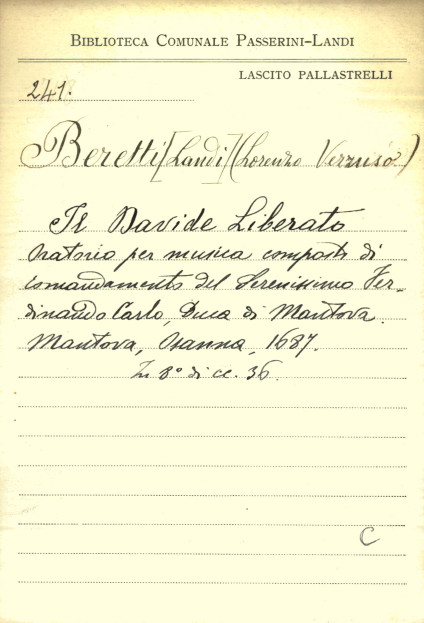 BIBLIOTECA COMUNALE PASSERINI-LANDI
LASCITO PALLASTRELLI
241.
Beretti [Landi] (Lorenzo Verzuso)
Il Davide Liberato
Oratorio per musica composto di
comandamento del Serenissimo Fer-
dinando Carlo, Duca di Mantova.
Mantova, Osanna, 1687.
In 8° di cc. 36.
C